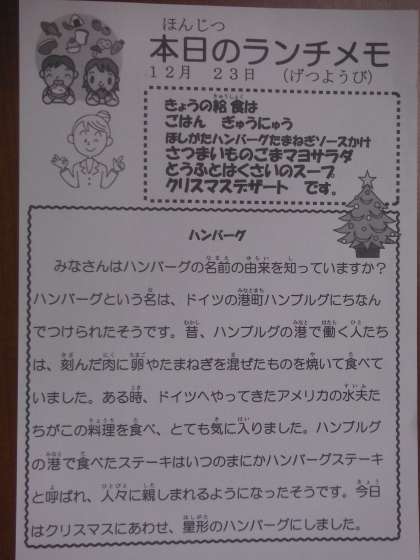 ほんじつ
本日のランチメモ
12月 23日 (げつようび)
きょうの給食は
ごはん ぎゅうにゅう
ほしがたハンバーグたまねぎソースかけ
さつまいものごまマヨサラダ
とうふとはくさいのスープ
クリスマスデザート です。
ハンバーグ
みなさんはハンバーグの名前の由来を知っていますか?
ハンバーグという名は、ドイツの港町ハンブルグにちなん
でつけられたそうです。昔、ハンブルグの港で働く人たち
は、刻んだ肉に卵やたまねぎを混ぜたものを焼いて食べて
いました。ある時、ドイツへやってきたアメリカの水夫た
ちがこの料理を食べ、とても気に入りました。ハンブルグ
の港で食べたステーキはいつのまにかハンバーグステーキ
と呼ばれ、人々に親しまれるようになったそうです。今日
はクリスマスにあわせ、星形のハンバーグにしました。